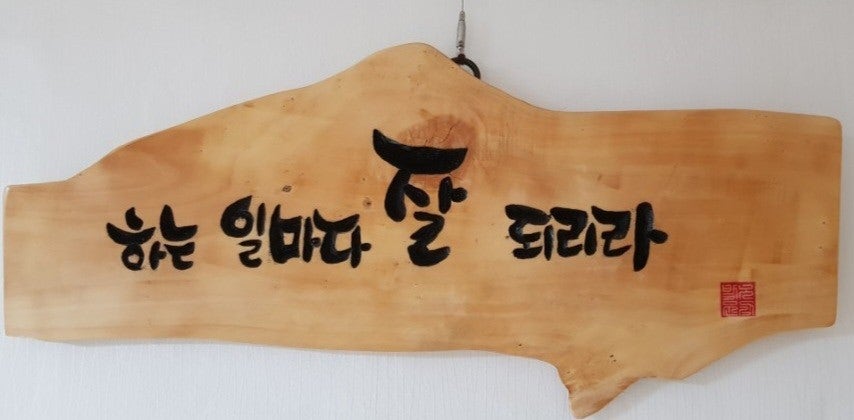 하는 일마다 잘 되리라